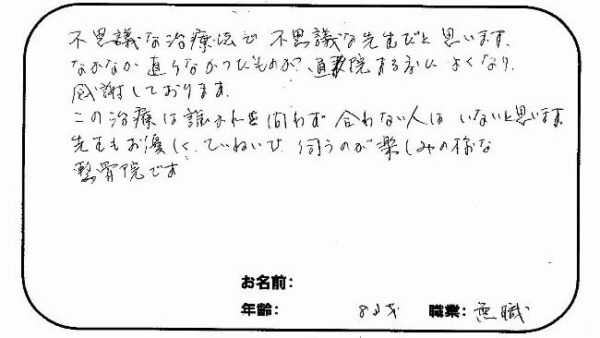 不思議な治療法で 不思議な先生だと思います。
なかなか直らなかったものが、通院する毎に よくなり、
感謝しております。
この治療は誰かれを問わず 合わない人は いないと思います。
先生もお優しく、ていねいで、伺うのが楽しみの様な
整骨院です
お名前:
年齢: 82才 職業: 無職